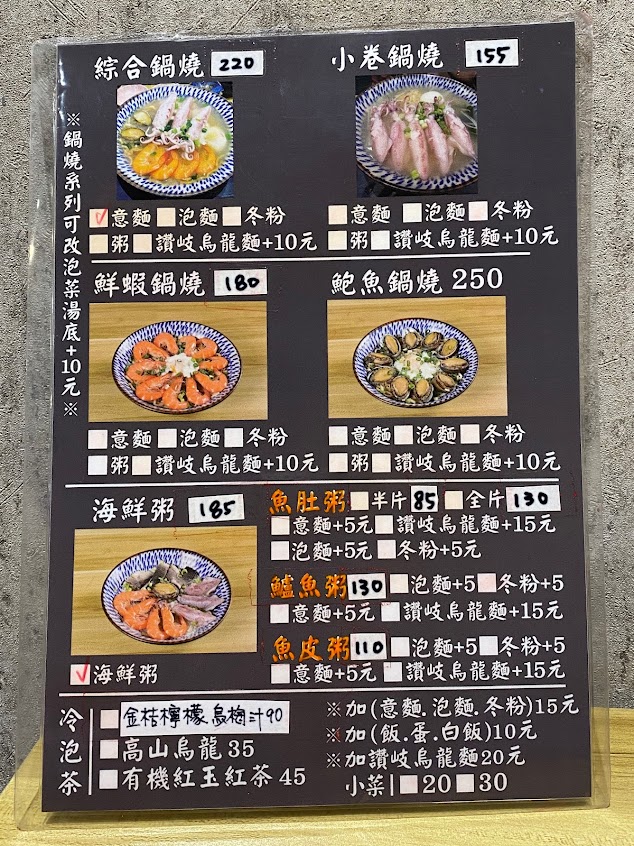 ※鍋燒系列可改泡菜湯底+10元※
綜合鍋燒 220
意麵 泡麵 冬粉
粥 讚岐烏龍麵+10元
小卷鍋燒 155
意麵 泡麵 冬粉
粥 讚岐烏龍麵+10元
鮮蝦鍋燒 180
意麵 泡麵 冬粉
粥 讚岐烏龍麵+10元
鮑魚鍋燒 250
意麵 泡麵 冬粉
粥 讚岐烏龍麵+10元
海鮮粥 185
海鮮粥
魚肚粥 半片 85 全片 130
意麵+5元 讚岐烏龍麵+15元
泡麵+5元 冬粉+5元
鱸魚粥 130 泡麵+5 冬粉+5
意麵+5元 讚岐烏龍麵+15元
魚皮粥 110 泡麵+5 冬粉+5
意麵+5元 讚岐烏龍麵+15元
冷泡茶
金桔檸檬烏梅汁90
高山烏龍 35
有機紅玉紅茶 45
※加(意麵.泡麵.冬粉)15元
※加(飯.蛋.白飯)10元
※加讚岐烏龍麵20元
小菜 20 30